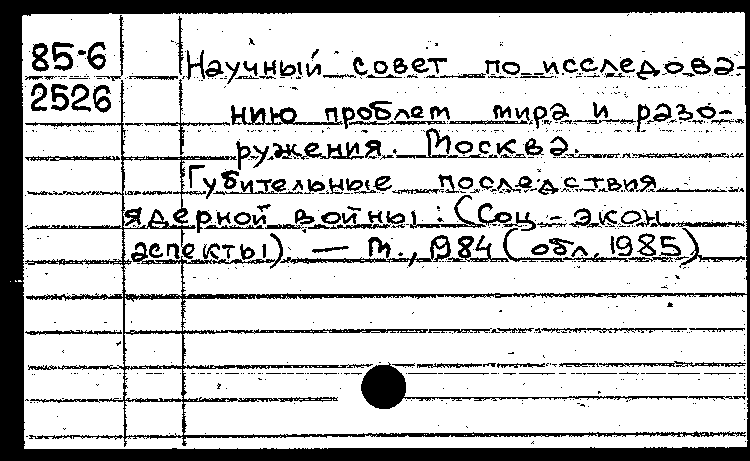 85-6 Научный совет по исследова-
2526 нию проблем мира и разо-
ружения. Москва.
Губительные последствия
ядерной войны: (Соц-экон
аспекты). — М., 1984 (обл. 1985)